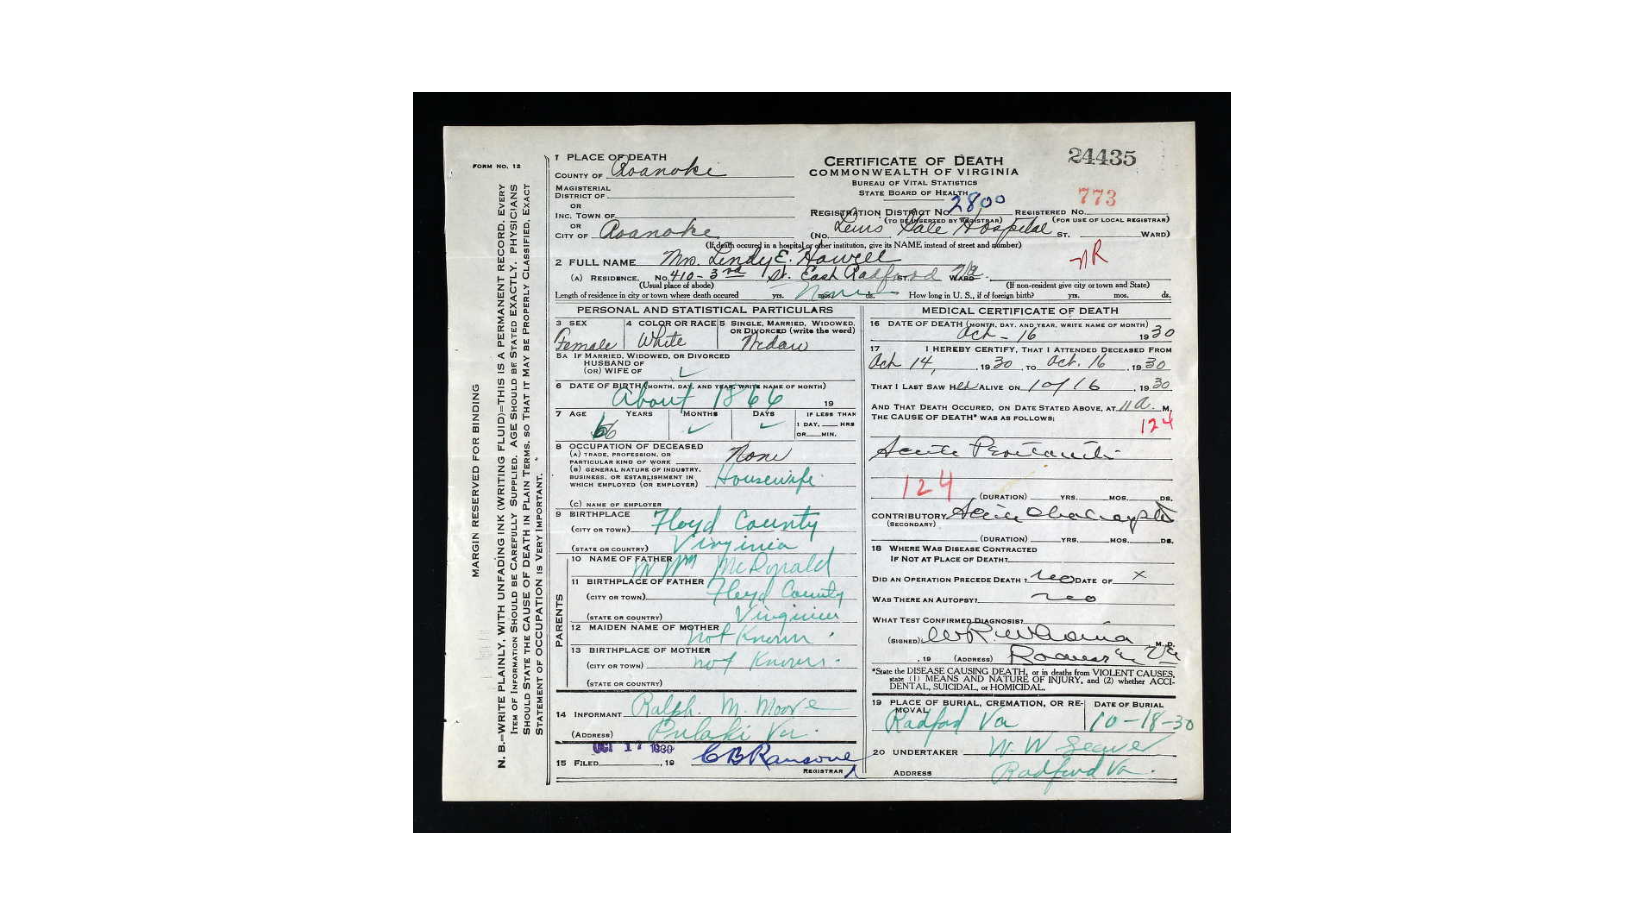 FORM NO. 12
MARGIN RESERVED FOR BINDING
N. B.—WRITE PLAINLY, WITH UNFADING INK (WRITING FLUID)—THIS IS A PERMANENT RECORD. EVERY
ITEM OF INFORMATION SHOULD BE CAREFULLY SUPPLIED. AGE SHOULD BE STATED EXACTLY. PHYSICIANS
SHOULD STATE THE CAUSE OF DEATH IN PLAIN TERMS, SO THAT IT MAY BE PROPERLY CLASSIFIED. EXACT
STATEMENT OF OCCUPATION IS VERY IMPORTANT.
1 PLACE OF DEATH
COUNTY OF Roanoke
MAGISTERIAL
DISTRICT OF
OR
INC. TOWN OF
OR
CITY OF Roanoke
CERTIFICATE OF DEATH
COMMONWEALTH OF VIRGINIA
BUREAU OF VITAL STATISTICS
STATE BOARD OF HEALTH
24435
REGISTRATION DISTRICT NO. 2800 REGISTERED NO. 773
(TO BE INSERTED BY REGISTRAR) (FOR USE OF LOCAL REGISTRAR)
(No. Lewis Gale Hospital ST. WARD)
(If death occured in a hospital or other institution, give its NAME instead of street and number)
2 FULL NAME Mrs. Lindy E. Howell
NR
(A) RESIDENCE. No. 410-3rd St. East Radford ST. Va WARD
(Usual place of abode) (If non-resident give city or town and State)
Length of residence in city or town where death occured yrs. mos. ds. How long in U. S., if of foreign birth? yrs. mos. ds.
PERSONAL AND STATISTICAL PARTICULARS
3 SEX Female
4 COLOR OR RACE White
5 SINGLE, MARRIED, WIDOWED,
OR DIVORCED (write the word)
5A IF MARRIED, WIDOWED, OR DIVORCED
HUSBAND OF
(OR) WIFE OF
6 DATE OF BIRTH (MONTH, DAY, AND YEAR, WRITE NAME OF MONTH)
About 1866 19
7 AGE YEARS MONTHS DAYS IF LESS THAN
1 DAY, HRS
OR MIN.
8 OCCUPATION OF DECEASED
(A) TRADE, PROFESSION, OR
PARTICULAR KIND OF WORK None
(B) GENERAL NATURE OF INDUSTRY,
BUSINESS, OR ESTABLISHMENT IN
WHICH EMPLOYED (OR EMPLOYER) Housewife
(C) NAME OF EMPLOYER
9 BIRTHPLACE
(CITY OR TOWN) Floyd County
(STATE OR COUNTRY) Virginia
PARENTS
10 NAME OF FATHER Wm McDonald
11 BIRTHPLACE OF FATHER
(CITY OR TOWN) Floyd County
(STATE OR COUNTRY) Virginia
12 MAIDEN NAME OF MOTHER
not Known
13 BIRTHPLACE OF MOTHER
(CITY OR TOWN) not Known
(STATE OR COUNTRY)
14 INFORMANT Ralph M. Moore
(ADDRESS) Pulaski Va.
OCT 17 1930
15 FILED , 19 C B Ransone
REGISTRAR
MEDICAL CERTIFICATE OF DEATH
16 DATE OF DEATH (MONTH, DAY, AND YEAR, WRITE NAME OF MONTH)
Oct - 16 1930
17 I HEREBY CERTIFY, THAT I ATTENDED DECEASED FROM
Oct 14, 1930, TO Oct. 16, 1930
THAT I LAST SAW her ALIVE ON 10/16, 1930
AND THAT DEATH OCCURED, ON DATE STATED ABOVE, AT 11 a. M.
THE CAUSE OF DEATH* WAS AS FOLLOWS:
124
Acute
124
(DURATION) YRS. MOS. DS.
CONTRIBUTORY Acute
(SECONDARY)
(DURATION) YRS. MOS. DS.
18 WHERE WAS DISEASE CONTRACTED
IF NOT AT PLACE OF DEATH?
DID AN OPERATION PRECEDE DEATH? no DATE OF x
WAS THERE AN AUTOPSY? no
WHAT TEST CONFIRMED DIAGNOSIS?
(SIGNED) M.D.
, 19 (ADDRESS) Roanoke Va
*State the DISEASE CAUSING DEATH, or in deaths from VIOLENT CAUSES,
state (1) MEANS AND NATURE OF INJURY, and (2) whether ACCI-
DENTAL, SUICIDAL, or HOMICIDAL.
19 PLACE OF BURIAL, CREMATION, OR RE-
MOVAL
Radford Va
DATE OF BURIAL
10-18-30
20 UNDERTAKER W. W
ADDRESS Radford Va.